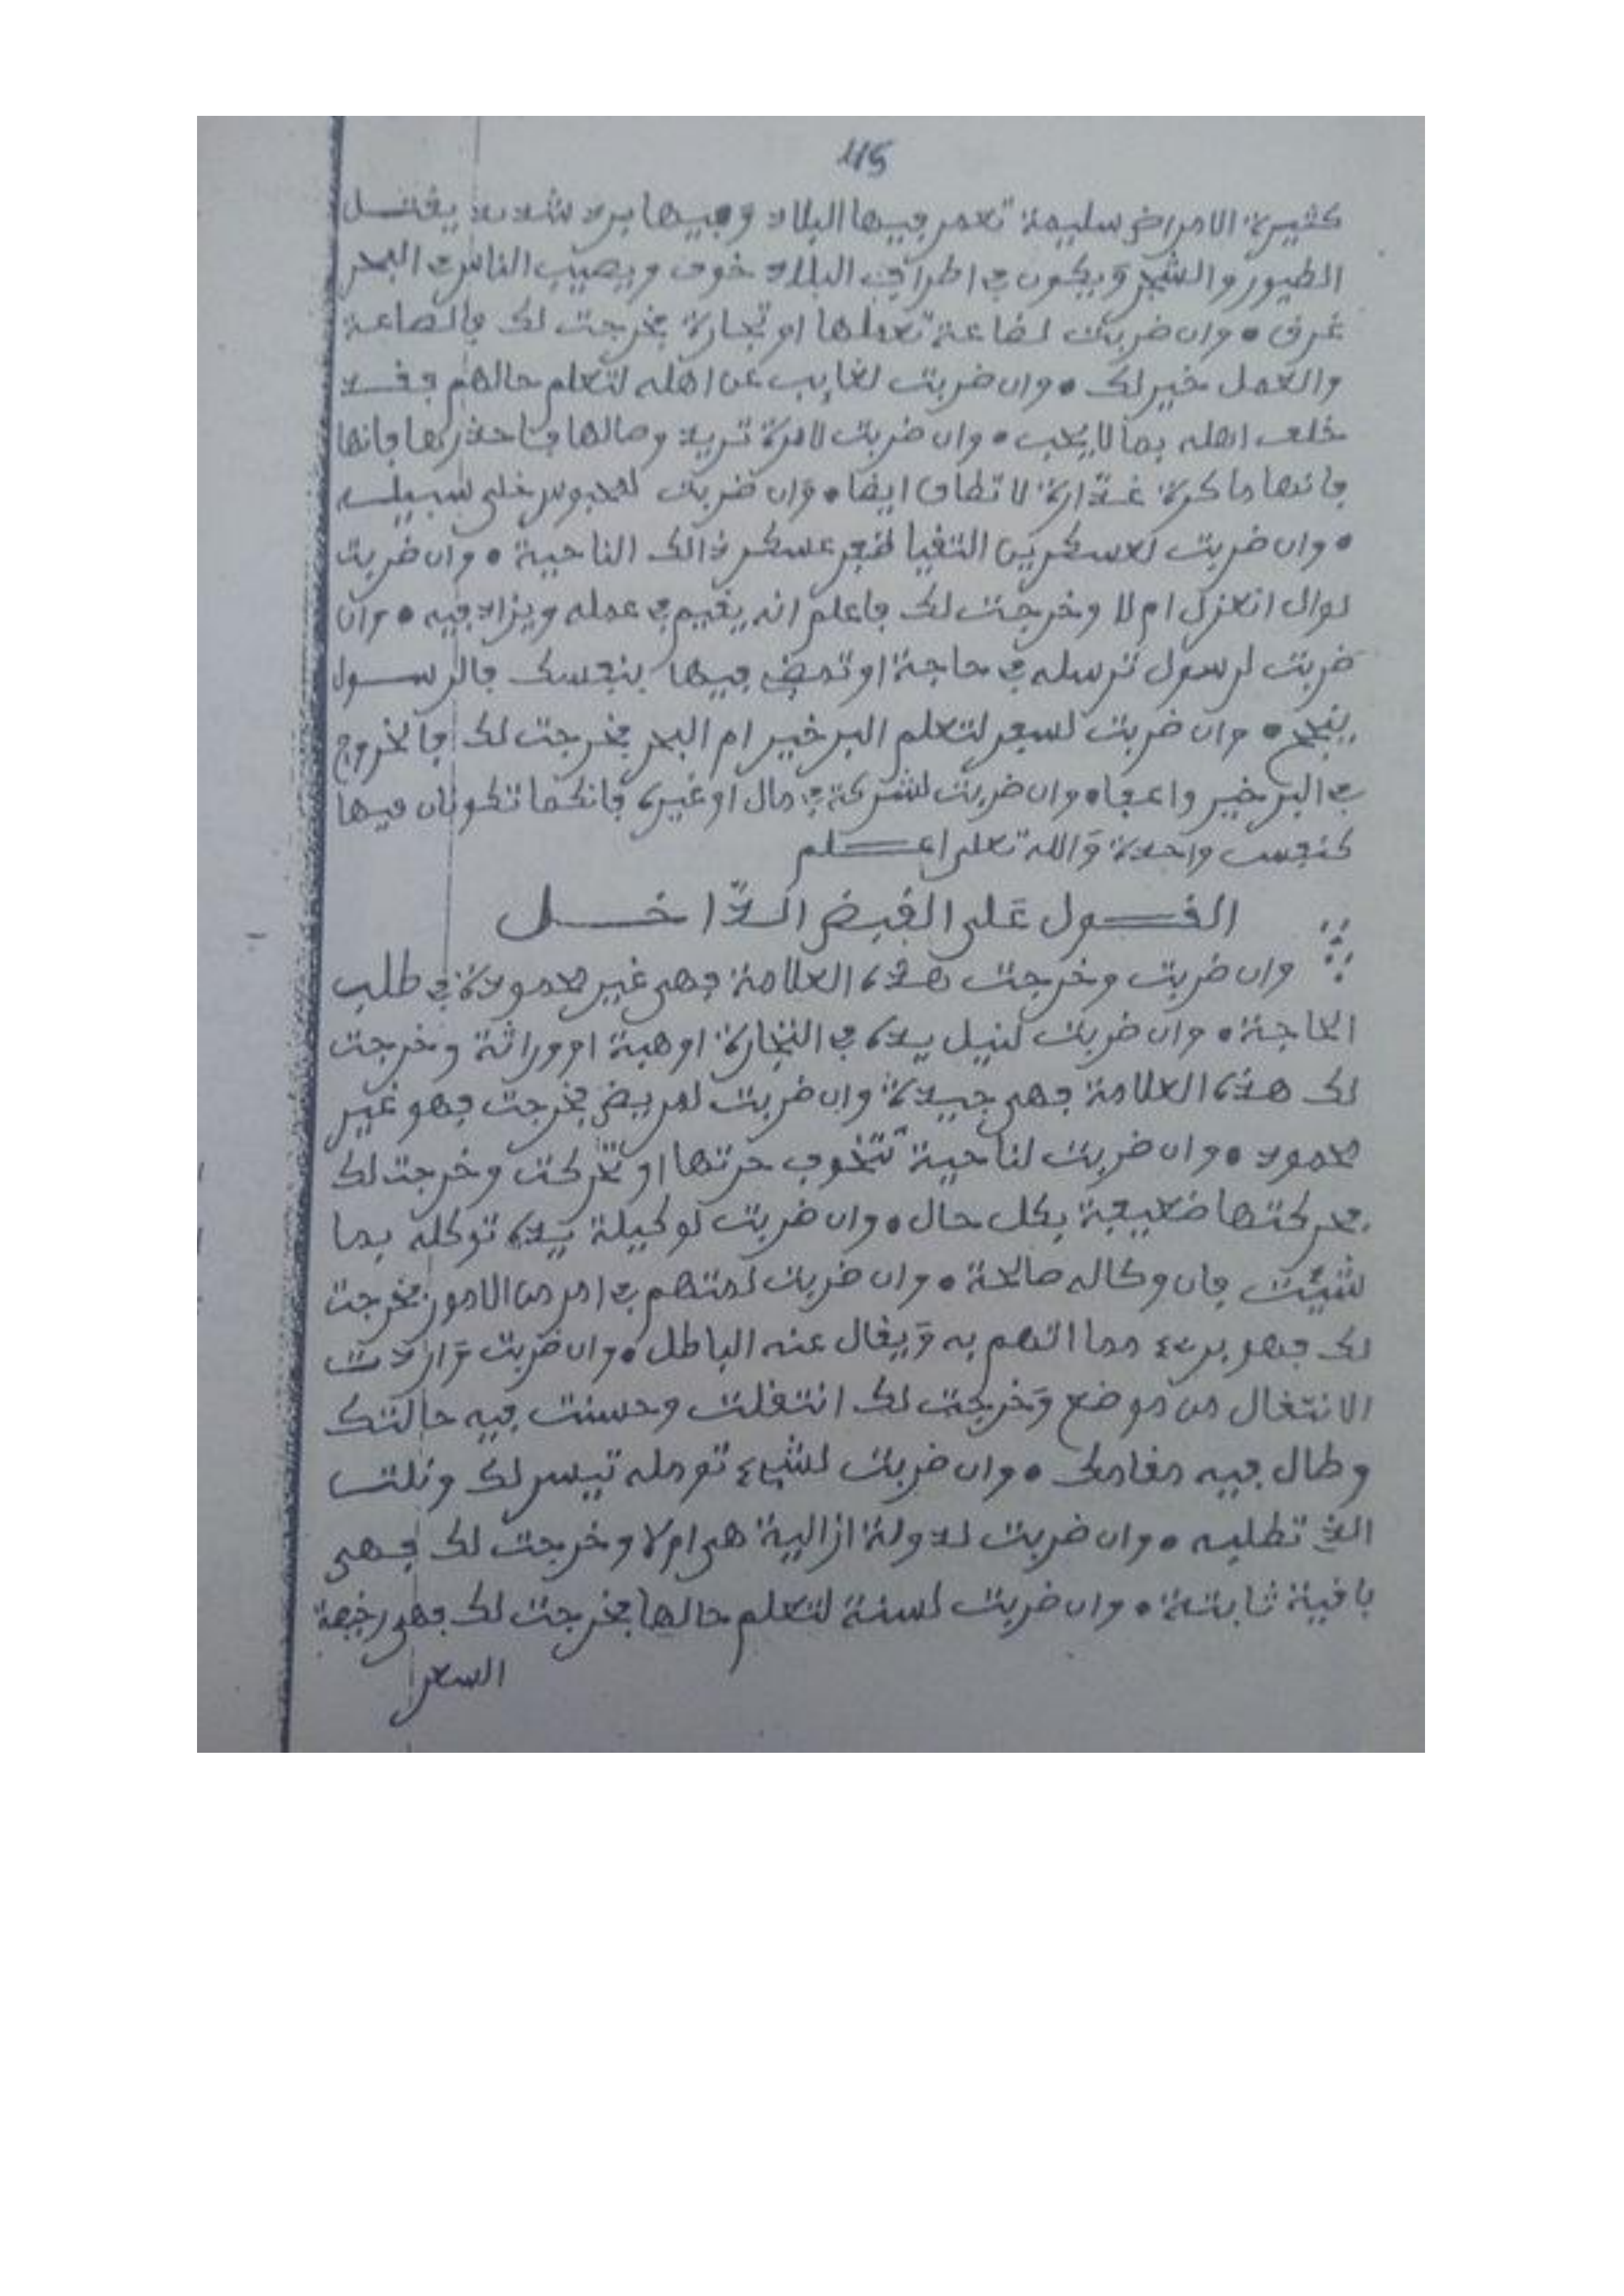 45
كثيرة الامراض سليمة تعمر فيها البلاد وفيها برد شديد يقتل
الطيور والشجر ويكون في اطراف البلاد خوف ويصيب الناس في البحر
غرق • وان ضربت لضاعة تعملها او تجارة فخرجت لك فالضاعة
والعمل خير لك • وان ضربت لغايب عن اهله لتعلم حالهم فقد
خلف اهله بما لا يحب • وان ضربت لامرة تريد وصالها فاحذرها فانها
فانها ماكرة غدارة لا تطاق ايضا • وان ضربت لمحبوس خلي سبيله
• وان ضربت لعسكرين التقيا ظفر عسكر ذالك الناحية • وان ضربت
لوال انعزل ام لا وخرجت لك فاعلم انه يقيم في عمله ويزاد فيه • وان
ضربت لرسول ترسله في حاجة او تمض فيها بنفسك فالرسول
ينجح • وان ضربت لسفر لتعلم البر خير ام البحر فخرجت لك فالخروج
في البر خير واعفا • وان ضربت لشركة في مال او غيره فانكما تكونان فيها
كنفس واحدة والله تعلى اعلم
القول على القبض الداخل
وان ضربت وخرجت هذه العلامة فهى غير محمودة في طلب
الحاجة • وان ضربت لنيل يده في التجارة او هبة او وراثة وخرجت
لك هذه العلامة فهى جيدة وان ضربت لمريض فخرجت فهو غير
محمود • وان ضربت لناحية تتخوف حرتها او تحركت وخرجت لك
فحركتها ضعيفة بكل حال • وان ضربت لوكيلة يده توكله بما
شيئت فان وكاله صالحة • وان ضربت لمتهم في امر من الامور فخرجت
لك فهو برىء مما اتهم به ويقال عنه الباطل • وان ضربت واردت
الانتقال من موضع وخرجت لك انتقلت وحسنت فيه حالتك
وطال فيه مقامك • وان ضربت لشيء تومله تيسر لك ونلت
الذ تطلبه • وان ضربت لدولة ازالية هى ام لا وخرجت لك فهى
باقية ثابتة • وان ضربت لسنة لتعلم حالها فخرجت لك فهى رخيصة
السعر